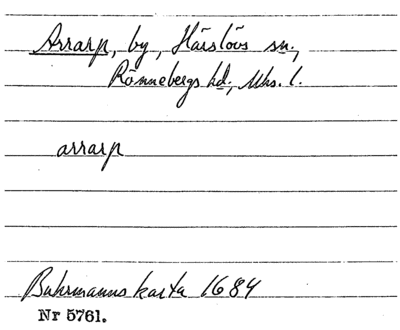 Arrarp, by, Härslövs sn.,
Rönnebergs hd., Mhs. l.
arrarp
Buhrmanns karta 1684
Nr 5761.